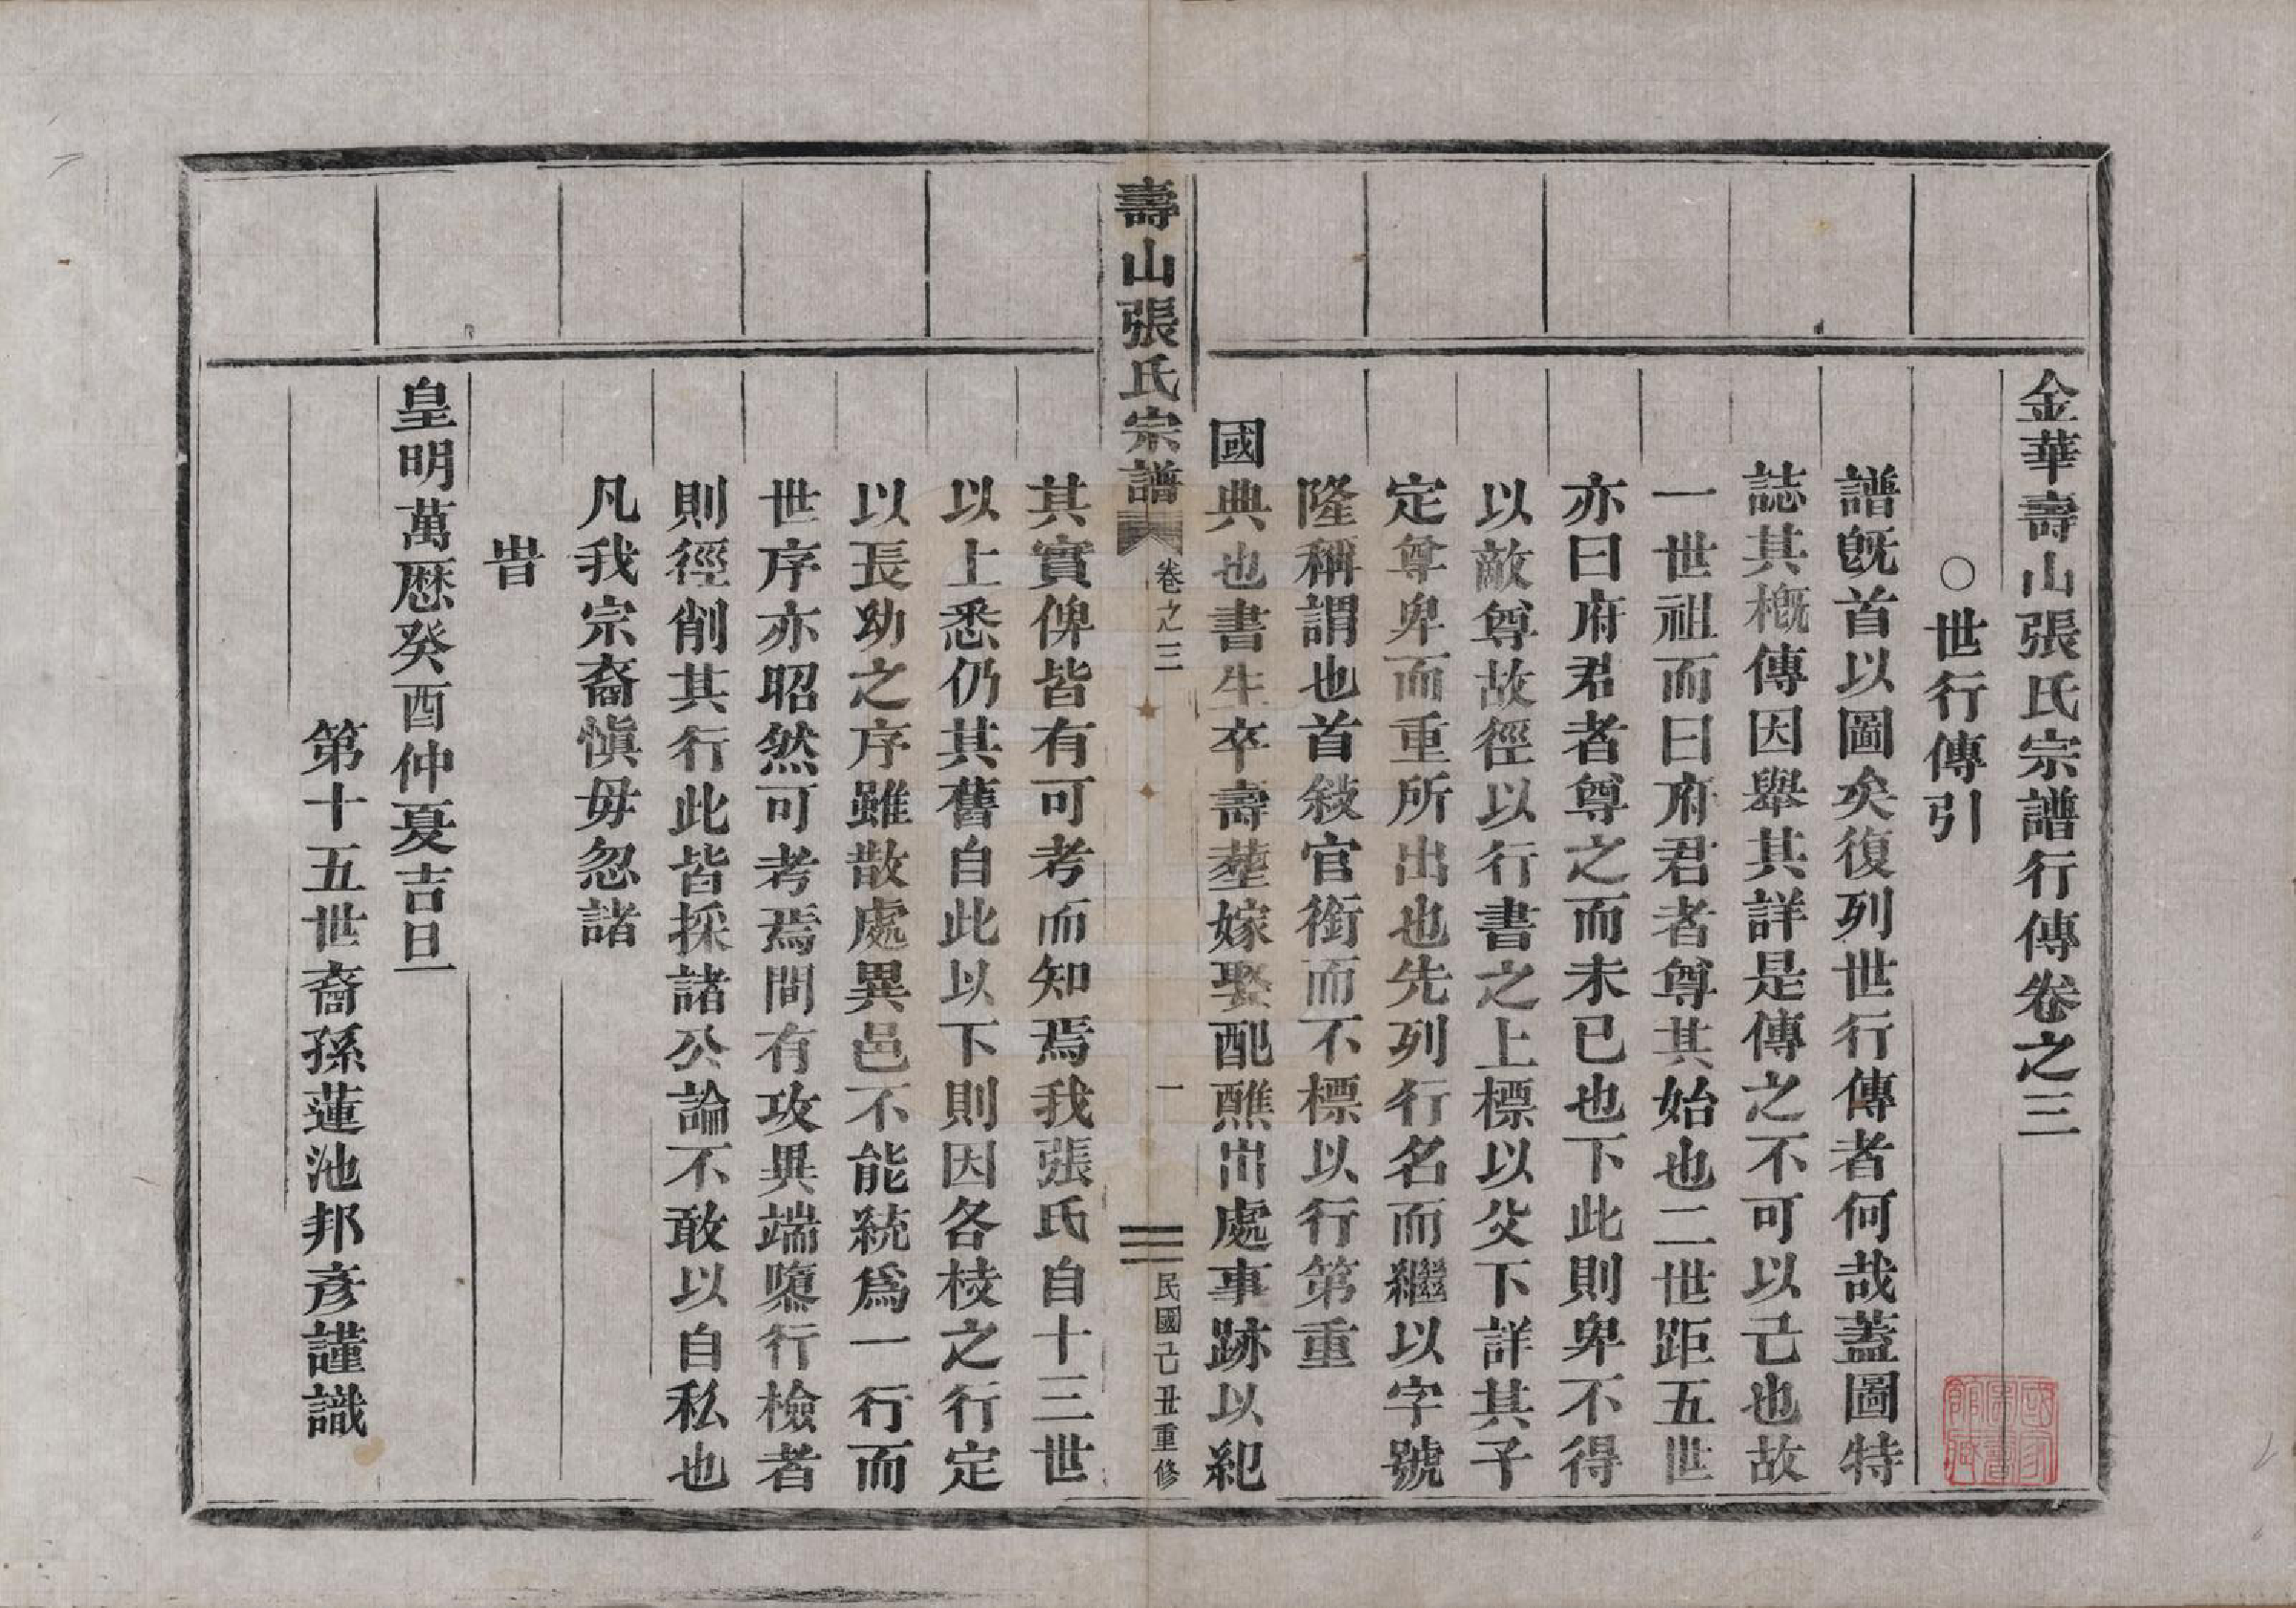 金華壽山張氏宗譜行傳卷之三
○世行傳引
譜旣首以圖矣復列世行傳者何哉蓋圖特
誌其槪傳因舉其詳是傳之不可以已也故
一世祖而曰府君者尊其始也二世距五世
亦曰府君者尊之而未已也下此則卑不得
以敵尊故徑以行書之上標以父下詳其子
定尊卑而重所出也先列行名而繼以字號
隆稱謂也首敍官銜而不標以行第重
國典也書生卒壽塟嫁娶配醮出處事跡以紀
壽山張氏宗譜
卷之三
一
民國己丑重修
其實俾皆有可考而知焉我張氏自十三世
以上悉仍其舊自此以下則因各枝之行定
以長幼之序雖散處異邑不能統爲一行而
世序亦昭然可考焉間有攻異端隳行檢者
則徑削其行此皆採諸公論不敢以自私也
凡我宗裔愼毋忽諸
旹
皇明萬歷癸酉仲夏吉旦
第十五世裔孫蓮池邦彥謹識
國家圖書館藏